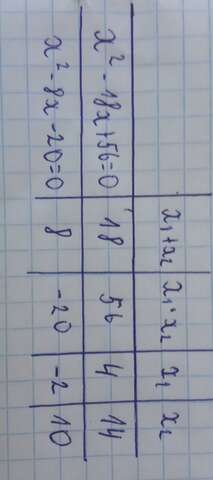 x₁+x₂ x₁·x₂ x₁ x₂
x² - 18x+56=0 18 56 4 14
x² - 8x - 20=0 8 -20 -2 10